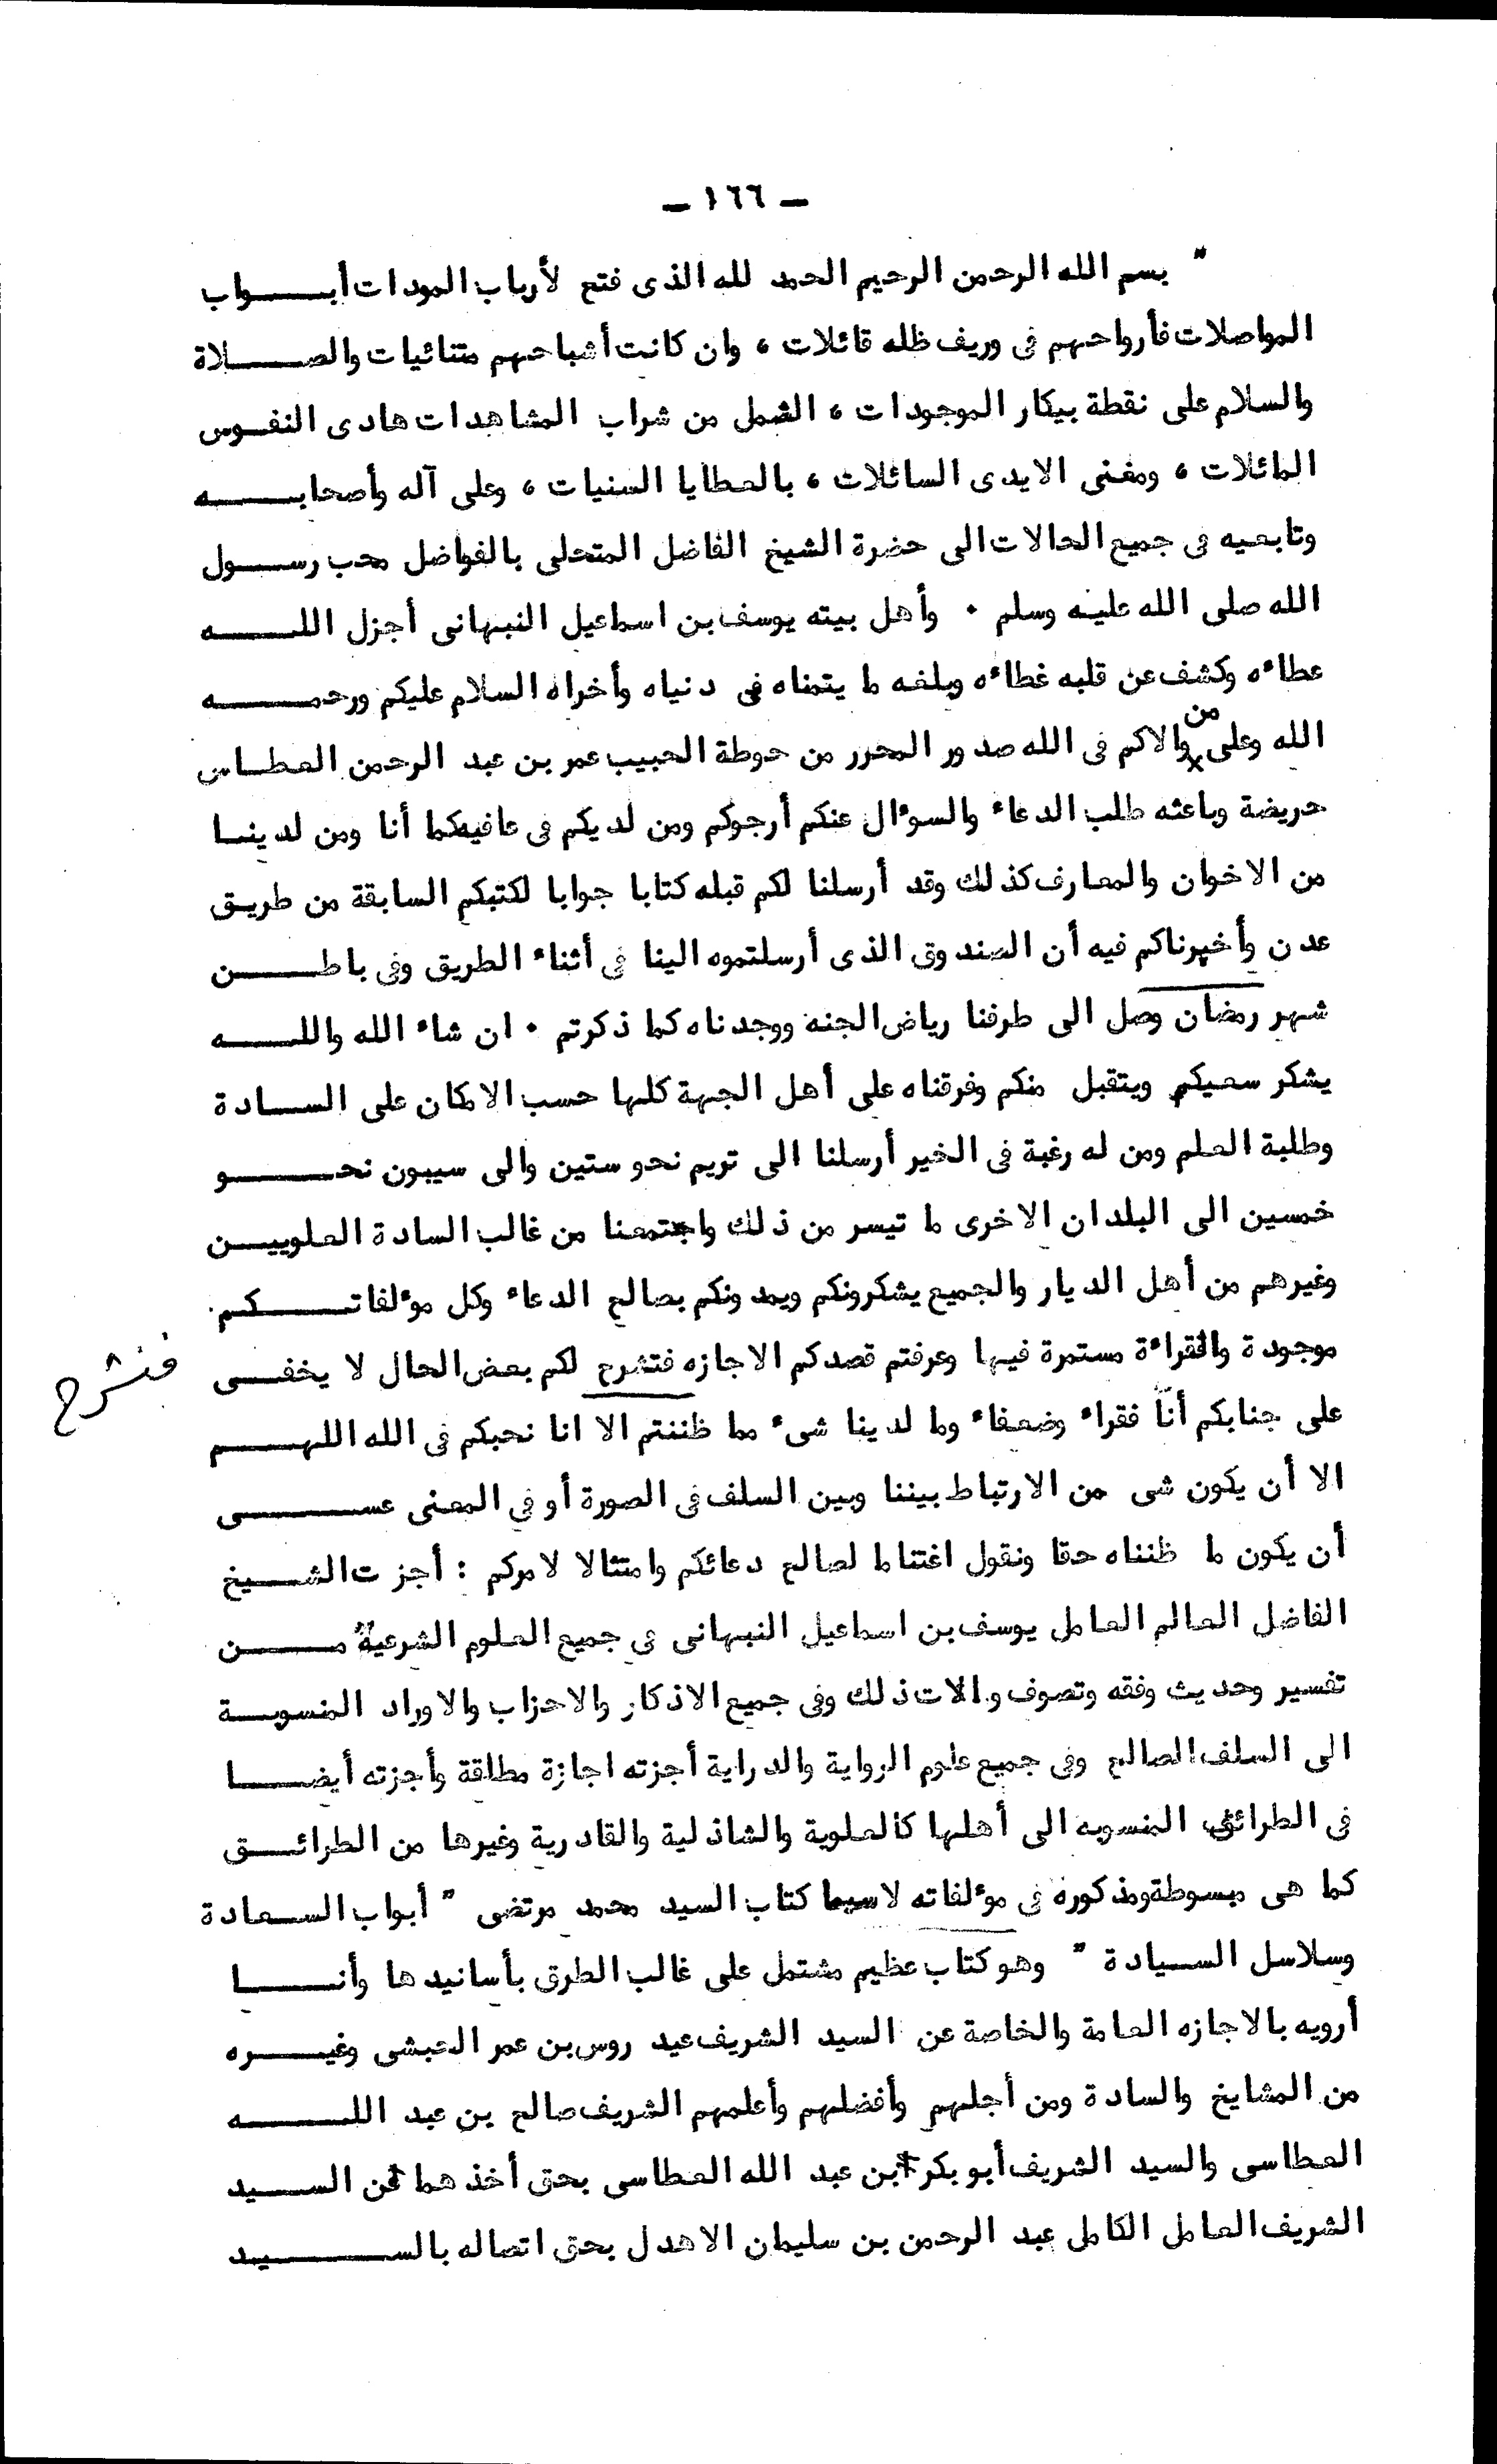 - ١٦٦ -
" بسم الله الرحمن الرحيم الحمد لله الذى فتح لأرباب المودات أبواب
المواصلات فأرواحهم فى وريف ظله قائلات ، وان كانت أشباحهم متنائيات والصلاة
والسلام على نقطة بيكار الموجودات ، الثمل من شراب المشاهدات هادى النفوس
المائلات ، ومغنى الايدى السائلات ، بالعطايا السنيات ، وعلى آله وأصحابه
وتابعيه فى جميع الحالات الى حضرة الشيخ الفاضل المتحلى بالفواضل محب رسول
الله صلى الله عليه وسلم ٠ وأهل بيته يوسف بن اسماعيل النبهانى أجزل الله
عطاءه وكشف عن قلبه غطاءه وبلغه ما يتمناه فى دنياه وأخراه السلام عليكم ورحمه
الله وعلى من والاكم فى الله صدور المحرر من حوطة الحبيب عمر بن عبد الرحمن العطاس
حريضة وباعثه طلب الدعاء والسوءال عنكم أرجوكم ومن لديكم فى عافيه كما أنا ومن لدينا
من الاخوان والمعارف كذلك وقد أرسلنا لكم قبله كتابا جوابا لكتبكم السابقة من طريق
عدن وأخبرناكم فيه أن الصندوق الذى أرسلتموه الينا فى أثناء الطريق وفى باطن
شهر رمضان وصل الى طرفنا رياض الجنه ووجدناه كما ذكرتم ٠ ان شاء الله والله
يشكر سعيكم ويتقبل منكم وفرقناه على أهل الجهة كلها حسب الامكان على السادة
وطلبة العلم ومن له رغبة فى الخير أرسلنا الى تريم نحو ستين والى سيبون نحو
خمسين الى البلدان الاخرى ما تيسر من ذلك واجتمعنا من غالب السادة العلويين
وغيرهم من أهل الديار والجميع يشكرونكم ويمدونكم بصالح الدعاء وكل موءلفاتكم
موجودة والقراءة مستمرة فيها وعرفتم قصدكم الاجازه فتشرح لكم بعض الحال لا يخفى
فنشرح
على جنابكم أنّا فقراء وضعفاء وما لدينا شىء مما ظننتم الا انا نحبكم فى الله اللهم
الا أن يكون شى من الارتباط بيننا وبين السلف فى الصورة أو فى المعنى عسى
أن يكون ما ظنناه حقا ونقول اغتناما لصالح دعائكم وامتثالا لامركم : أجزت الشيخ
الفاضل العالم العامل يوسف بن اسماعيل النبهانى فى جميع العلوم الشرعية من
تفسير وحديث وفقه وتصوف والات ذلك وفى جميع الاذكار والاحزاب والاوراد المنسوبة
الى السلف الصالح وفى جميع علوم الرواية والدراية أجزته اجازة مطلقة وأجزته أيضا
فى الطرائق المنسوبه الى أهلها كالعلوية والشاذلية والقادرية وغيرها من الطرائق
كما هى مبسوطة ومذكوره فى موءلفاته لاسيما كتاب السيد محمد مرتضى " أبواب السعادة
وسلاسل السيادة " وهو كتاب عظيم مشتمل على غالب الطرق بأسانيدها وأنا
أرويه بالاجازه العامة والخاصة عن السيد الشريف عيد روس بن عمر الحبشى وغيره
من المشايخ والسادة ومن أجلهم وأفضلهم وأعلمهم الشريف صالح بن عبد الله
العطاسى والسيد الشريف أبو بكر بن عبد الله العطاسى بحق أخذهما عن السيد
الشريف العامل الكامل عبد الرحمن بن سليمان الاهدل بحق اتصاله بالسيد